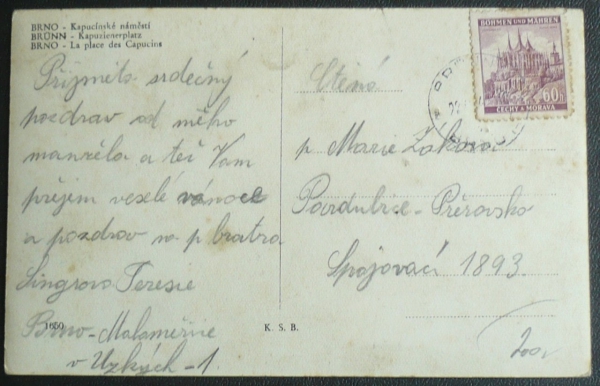 BRNO - Kapucínské náměstí
BRÜNN - Kapuzienerplatz
BRNO - La place des Capucins
Přijměte srdečný
pozdrav od mého
manžela a též Vam
přejem veselé vanoce
a pozdrav na p bratra
Singrova Teresie
Brno - Maloměřice
v Uzkých - 1.
1650
K. S. B.
BÖHMEN UND MÄHREN
60h
ČECHY A MORAVA
Ctěná
p Marie
Pardubice - Přerovsko
Spojovací 1893.